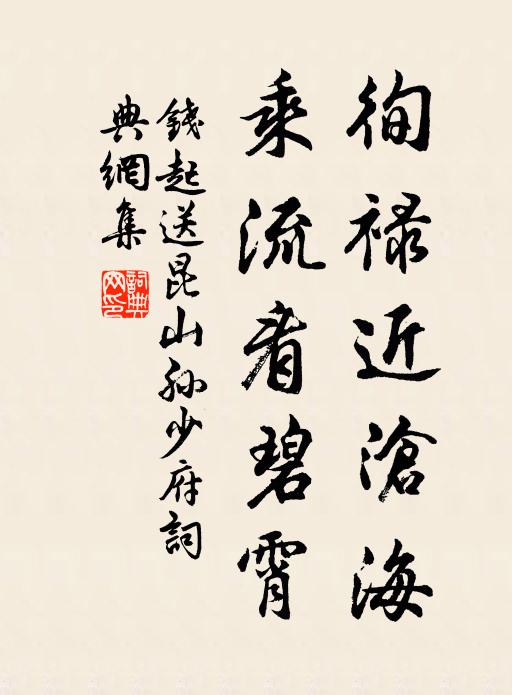 徇祿近滄海
乘流看碧霄
錢起送昆山孙少府詞
典網集
詞典
网印